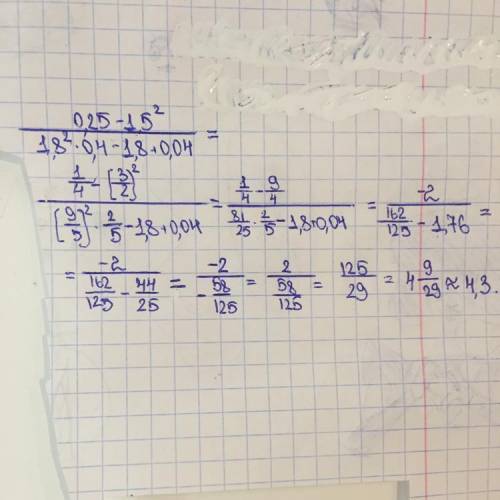 (0,25 - 1,5²)/(1,8² · 0,4 - 1,8 + 0,04) =
(1/4 - [3/2]²)/([9/5]² · 2/5 - 1,8 + 0,04) = (1/4 - 9/4)/(81/25 · 2/5 - 1,8 + 0,04) = -2/(162/125 - 1,76) =
= -2/(162/125 - 44/25) = -2/(-58/125) = 2/(58/125) = 125/29 = 4 9/29 ≈ 4,3.